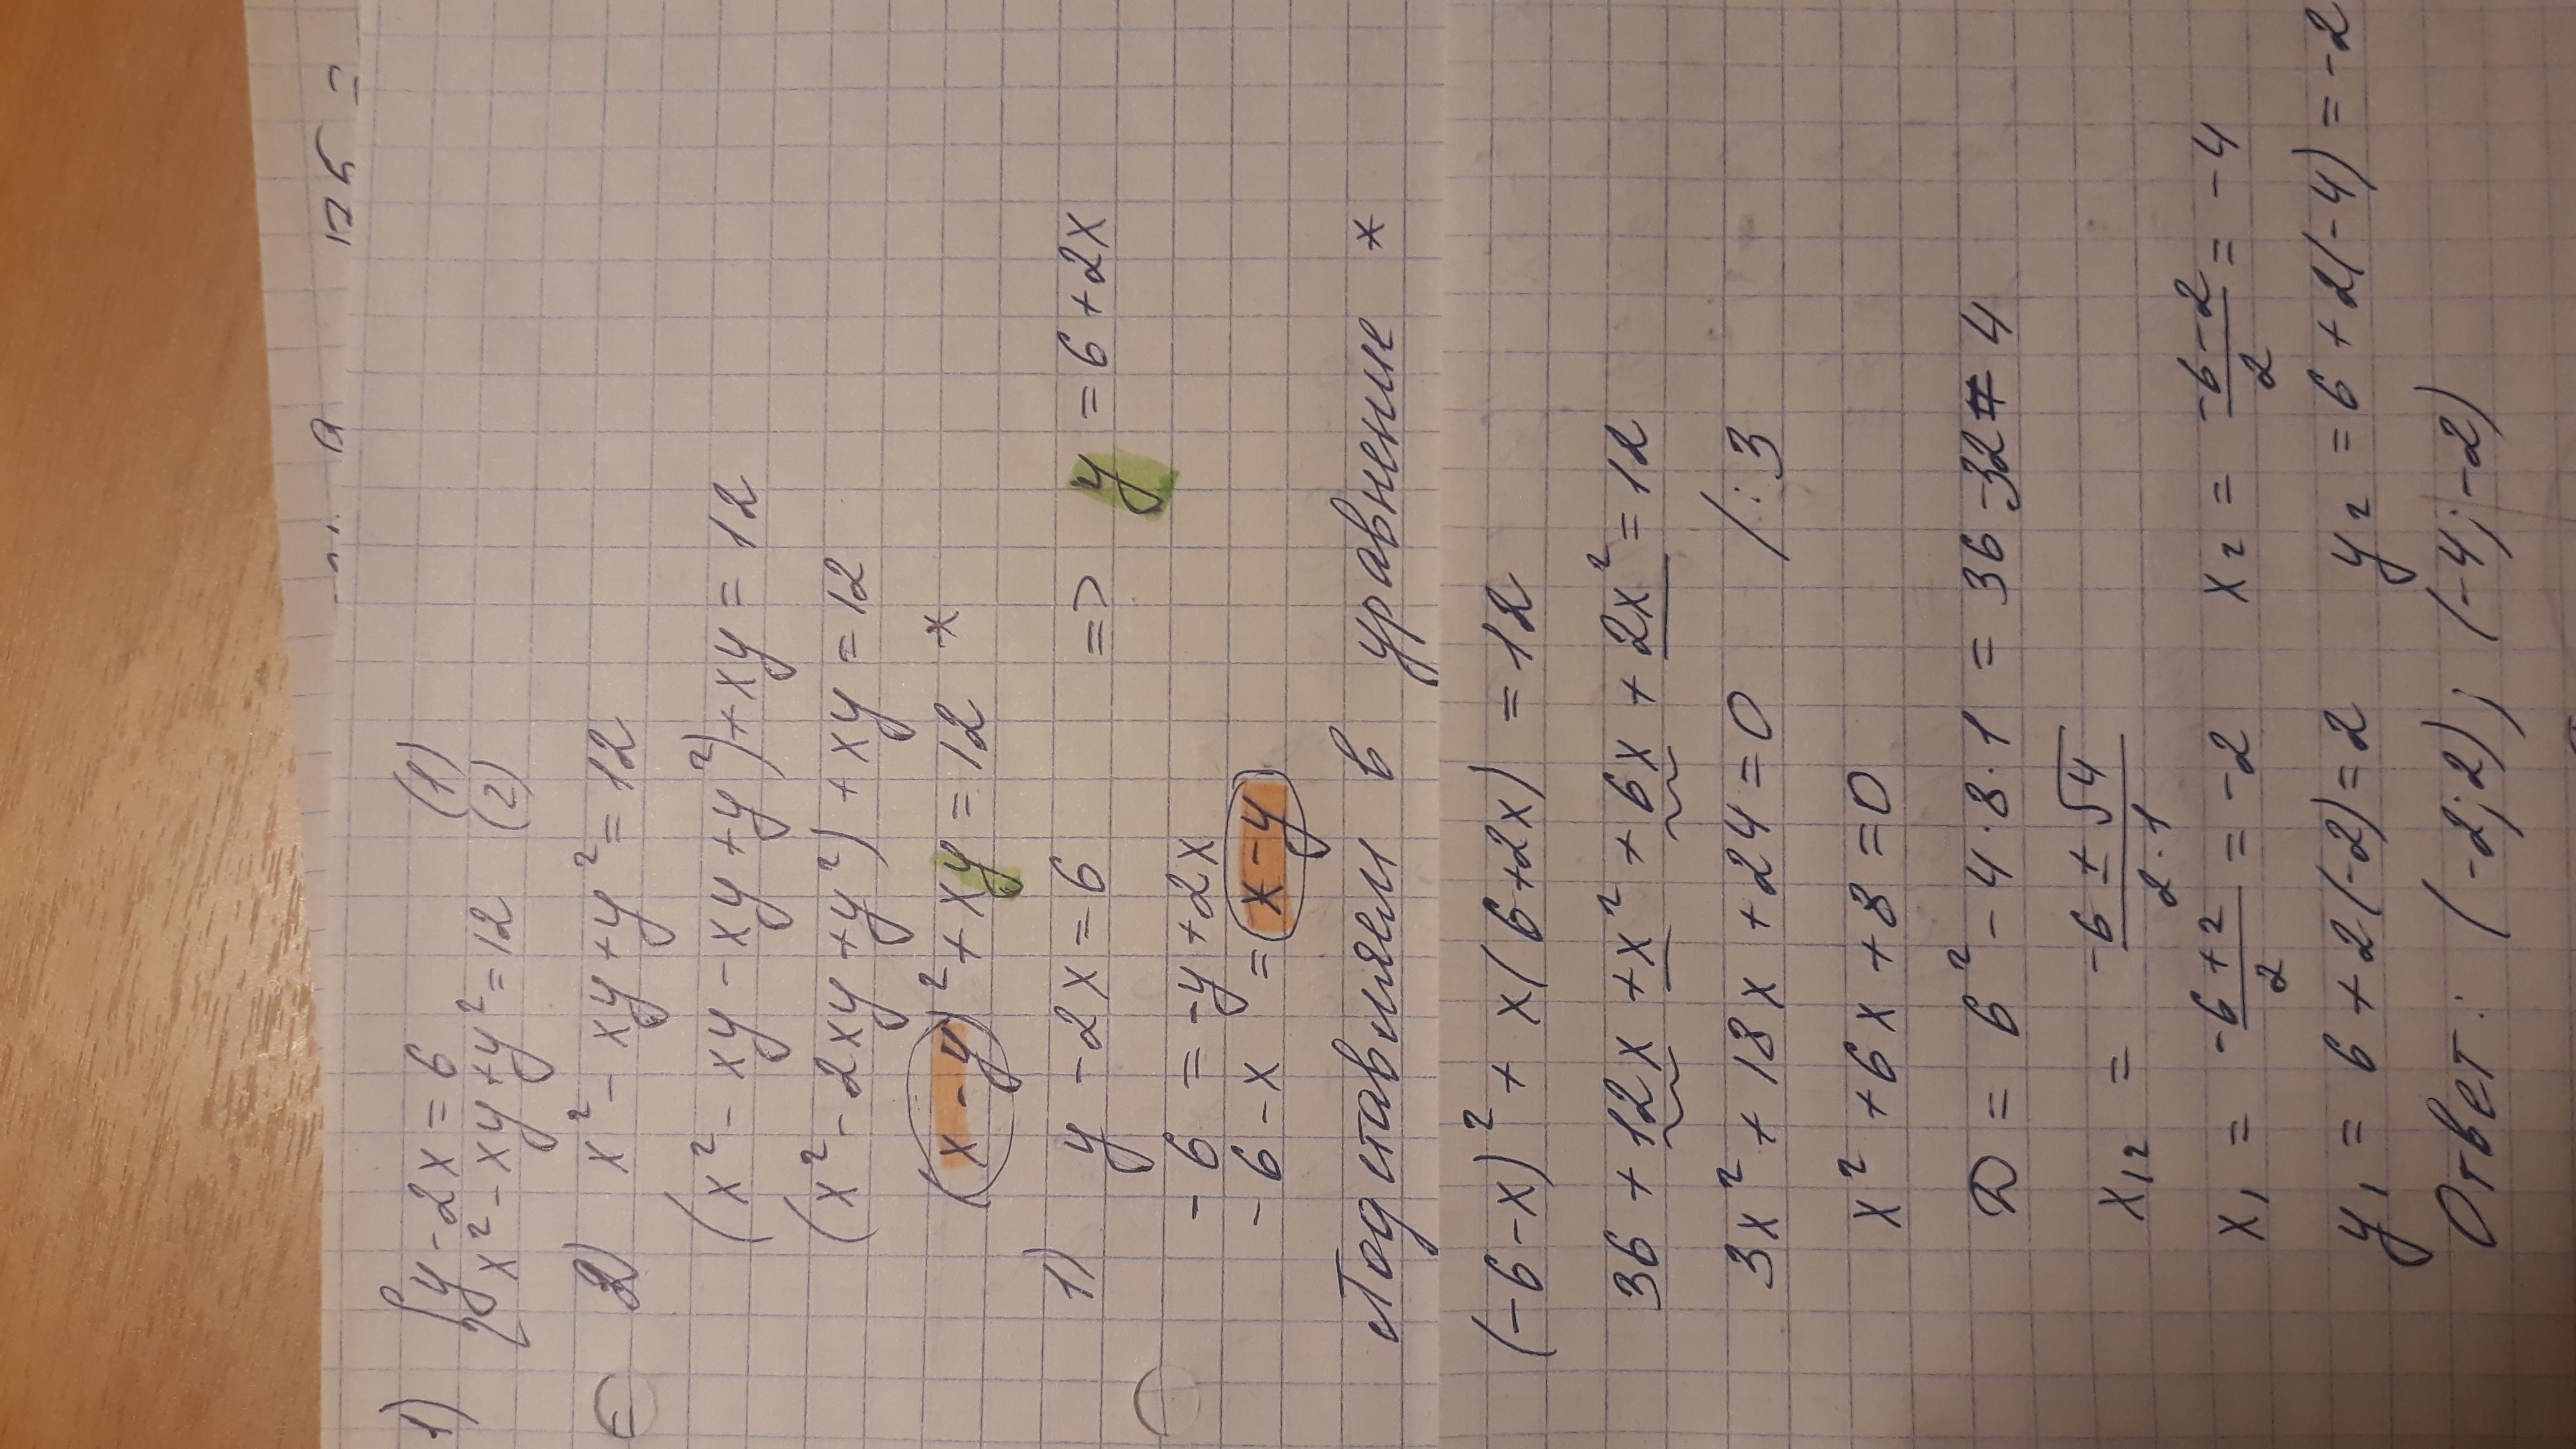 1) { y - 2x = 6 (1)
x² - xy + y² = 12 (2)
2) x² - xy + y² = 12
(x² - xy - xy + y²) + xy = 12
(x² - 2xy + y²) + xy = 12
(x - y)² + xy = 12 *
1) y - 2x = 6 => y = 6 + 2x
- 6 = -y + 2x
- 6 - x = x - y
Подставляем в уравнение *
(-6 - x)² + x(6 + 2x) = 12
36 + 12x + x² + 6x + 2x² = 12
3x² + 18x + 24 = 0 /:3
x² + 6x + 8 = 0
D = 6² - 4·8·1 = 36 - 32 = 4
x₁₂ = (-6 ± √4)/(2·1)
x₁ = (-6 + 2)/2 = -2 x₂ = (-6 - 2)/2 = -4
y₁ = 6 + 2(-2) = 2 y₂ = 6 + 2(-4) = -2
Ответ: (-2; 2); (-4; -2)